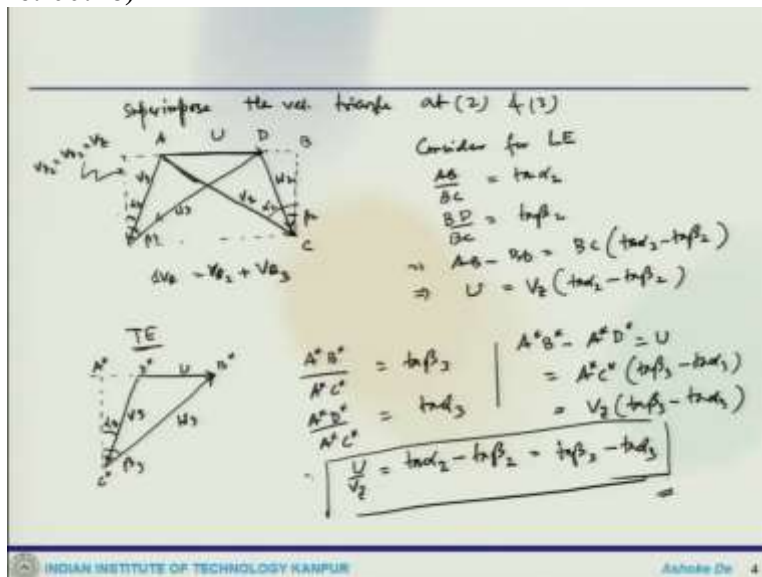 Superimpose the vel. triangle at (2) & (3)
A U D B
V_{z2} = V_{z3} = V_z
V3 W3 V2 W2
α3 β3 α2 β2
C
ΔV_θ = V_{θ2} + V_{θ3}
Consider for LE
AB/BC = tanα2
BD/BC = tanβ2
AB - BD = BC (tanα2 - tanβ2)
⇒ U = Vz (tanα2 - tanβ2)
TE
A* D* U B*
α3 V3 W3
C* β3
A*B*/A*C* = tanβ3
A*D*/A*C* = tanα3
A*B* - A*D* = U
= A*C* (tanβ3 - tanα3)
= Vz (tanβ3 - tanα3)
U/Vz = tanα2 - tanβ2 = tanβ3 - tanα3
INDIAN INSTITUTE OF TECHNOLOGY KANPUR
Ashoke De 4